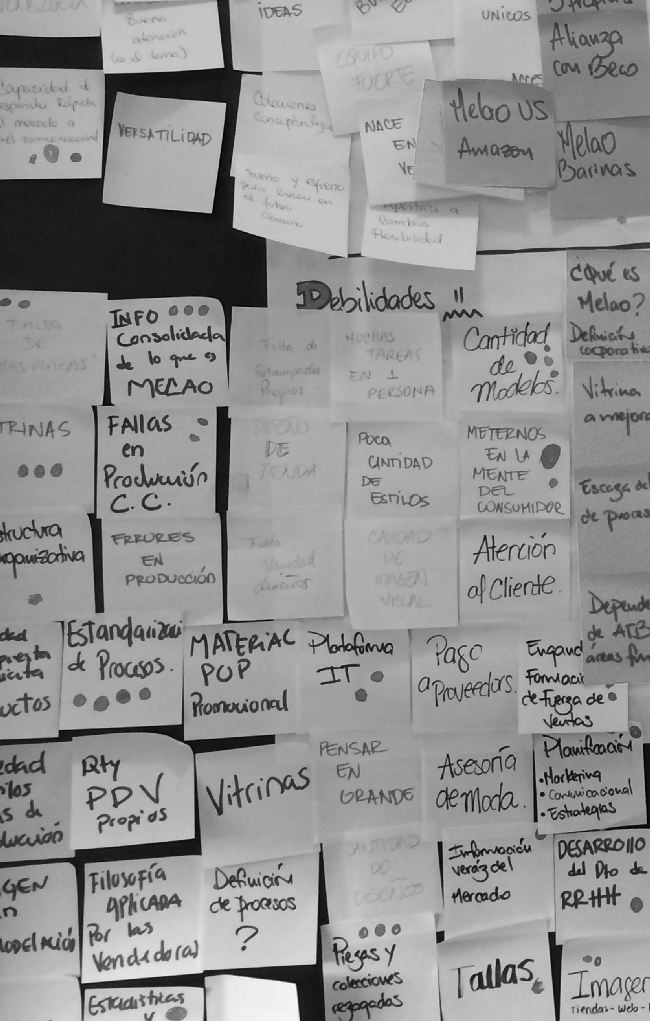 Buena
atención
IDEAS
UNICOS
Alianza
con Beco
Capacidad de
VERSATILIDAD
Colecciones
EQUIPO
FUERTE
NACE
EN
VE
Melao US
Amazon
Melao
Barinas
Apertura a
Cambios
Flexibilidad
Debilidades
¿Qué es
Melao?
Definición
corporativa
FALTA
DE
INFO
Consolidada
de lo que es
MELAO
Falta de
Estampados
Propios
MUCHAS
TAREAS
EN 1
PERSONA
Cantidad
de
Modelos.
Vitrina
a mejora
TRINAS
FALLAS
en
Producción
C. C.
DISEÑO
DE
TIENDA
POCA
CANTIDAD
DE
ESTILOS
METERNOS
EN LA
MENTE
DEL
CONSUMIDOR
Escaza de
de proceso
structura
organizativa
ERRORES
EN
PRODUCCIÓN
Falta
Variedad
diseños
CALIDAD
DE
IMAGEN
VISUAL
Atención
al Cliente.
Depende
de ATB
áreas fun
uctos
Estandarizaci
de Procesos.
MATERIAL
POP
Promocional
Plataforma
IT
Pago
a Proveedors.
Engand
Formaci
de Fuerza de
Ventas
edad
ilos
as de
ducción
Qty
PDV
Propios
Vitrinas
PENSAR
EN
GRANDE
Asesoría
de Moda.
Planificación
•Marketing
•Comunicacional
•Estrategias
GEN
Filosofía
APLICADA
Por las
Vendedoras
Definición
de procesos
?
CANTIDAD
DE
DISEÑOS
Información
veráz del
Mercado
DESARROLLO
del Dto de
RRHH
Estadísticas
y
Piezas y
colecciones
rezagadas
Tallas
Imagen
Tiendas-Web-